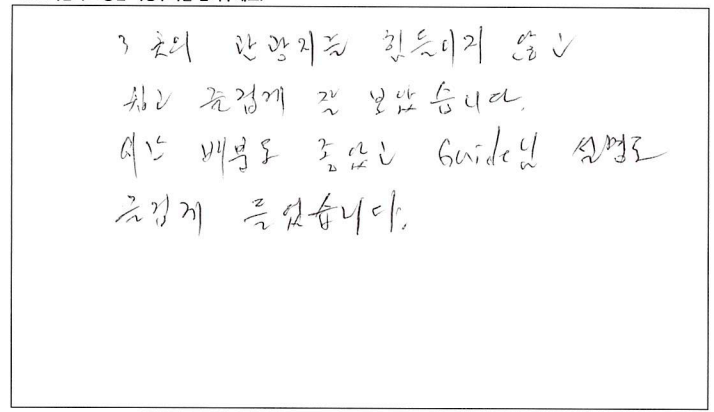 3 곳의 관광지를 힘들이지 않고
쉽고 즐겁게 잘 보았습니다.
시간 배분도 좋았고 Guide님 설명도
즐겁게 들었습니다.